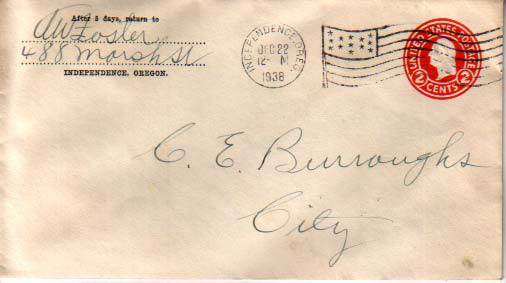 After 5 days, return to
AW Foster
488 Marsh St
INDEPENDENCE, OREGON.
INDEPENDENCE, OREG.
DEC 22
12- M
1938
UNITED STATES POSTAGE
2 CENTS 2
C. E. Burroughs
City